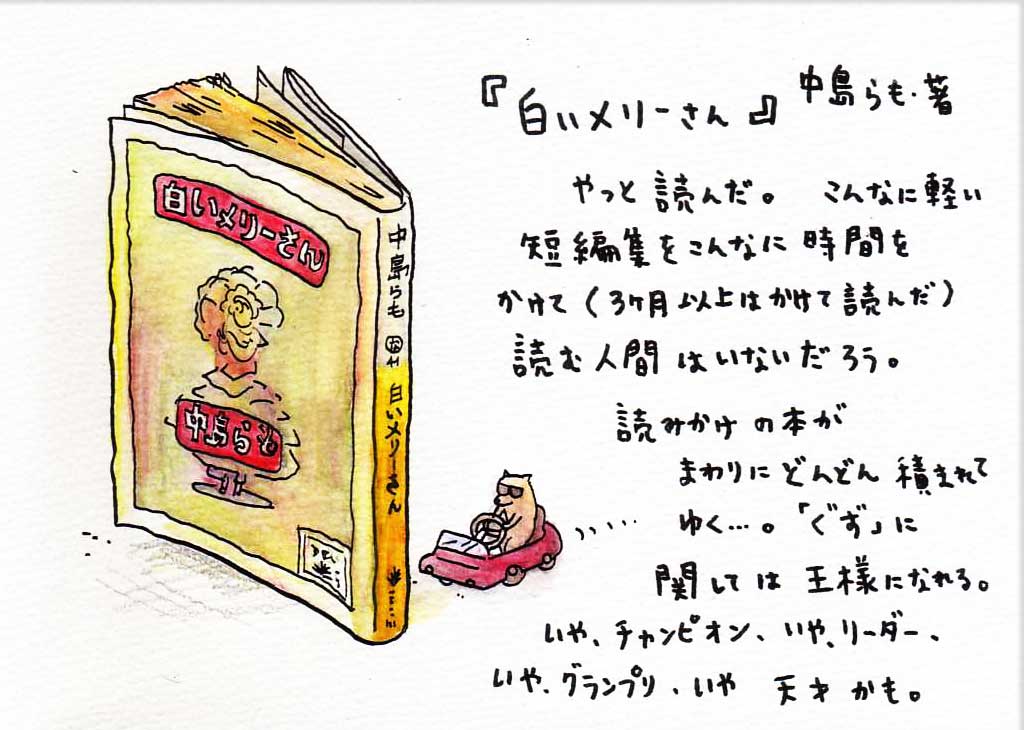 白いメリーさん
中島らも
中島らも
白いメリーさん
『白いメリーさん』 中島らも・著
やっと読んだ。 こんなに軽い
短編集をこんなに時間を
かけて(3ヶ月以上はかけて読んだ)
読む人間はいないだろう。
読みかけの本が
まわりにどんどん積まれて
ゆく…。「ぐず」に
関しては王様になれる。
いや、チャンピオン、いや、リーダー、
いや、グランプリ、いや 天才かも。